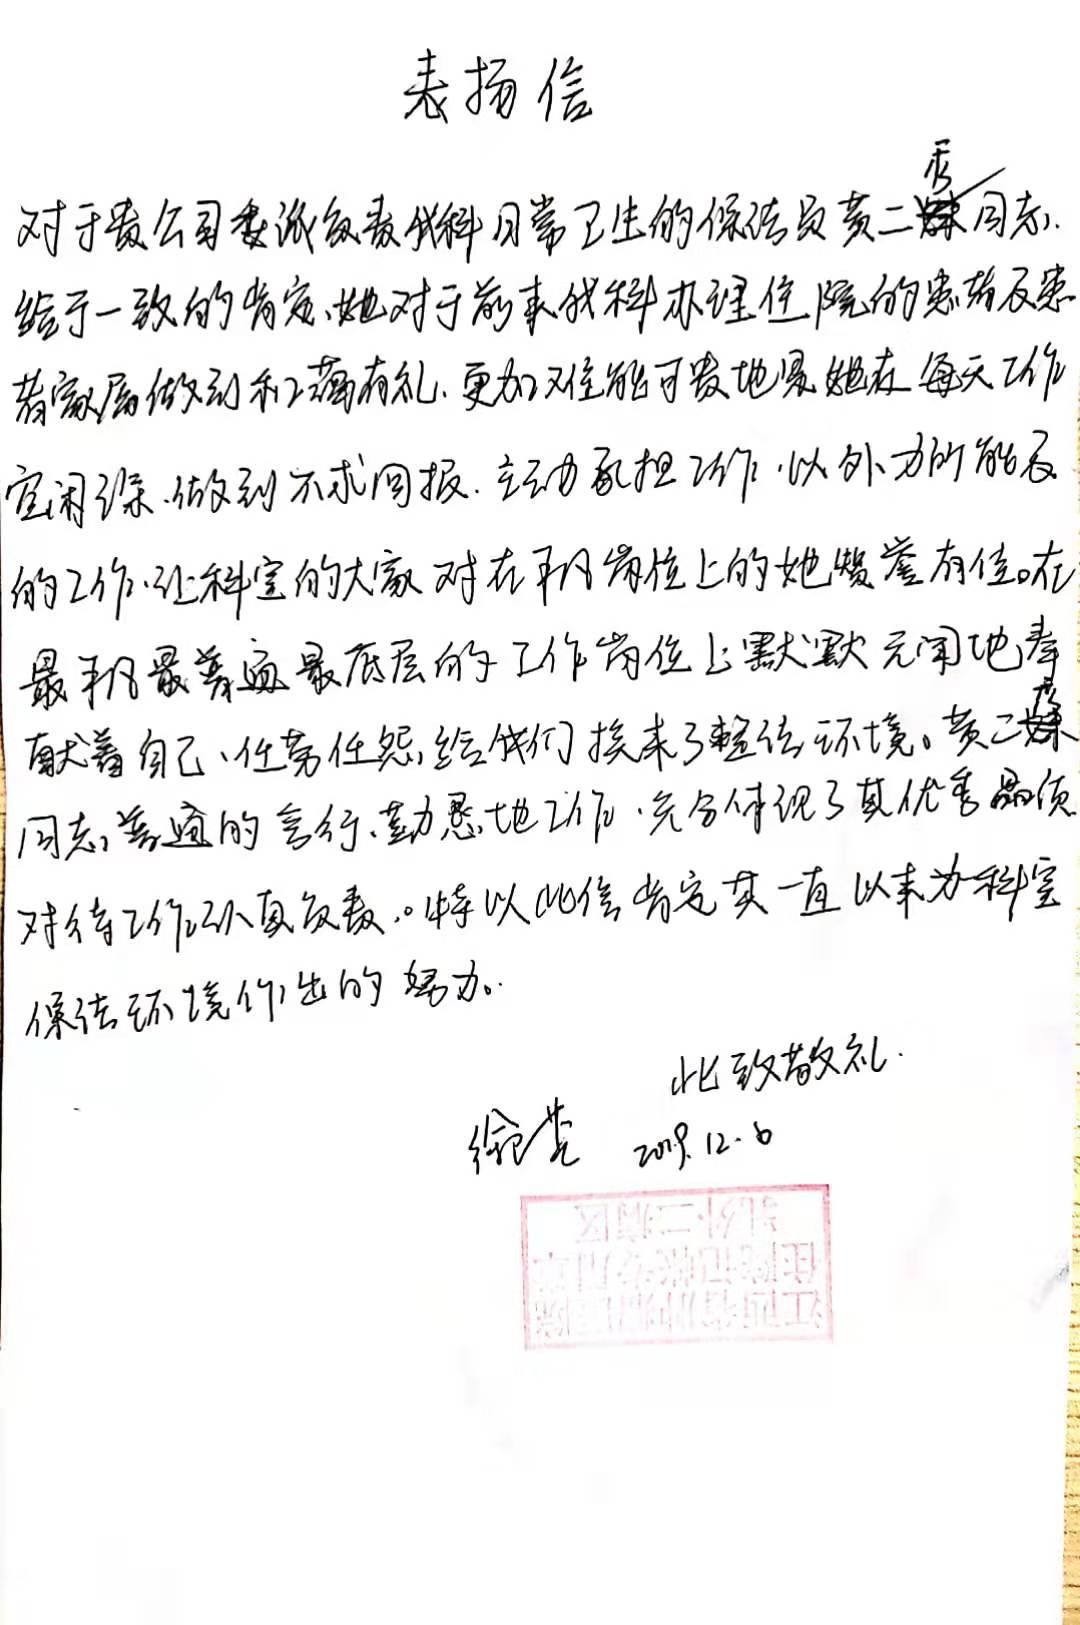 表扬信
对于贵公司委派负责我科日常卫生的保洁员黄二秀同志.
给于一致的肯定、她对于前来我科办理住院的患者及患
者家属做到和蔼有礼.更加难能可贵地是她在每天工作
空闲之余.做到不求回报.主动承担工作.以外力所能及
的工作.让科室的大家对在平凡岗位上的她赞誉有佳。在
最平凡最普通最底层的工作岗位上默默无闻地奉
献着自己、任劳任怨,给我们换来了整洁环境。黄二秀
同志,普通的言行、勤恳地工作.充分体现了其优秀品质
对待工作认真负责。特以此信肯定其一直以来为科室
保洁环境作出的努力。
此致敬礼.
2019.12.6
乳外二病区
住院记帐专用章
江西省肿瘤医院